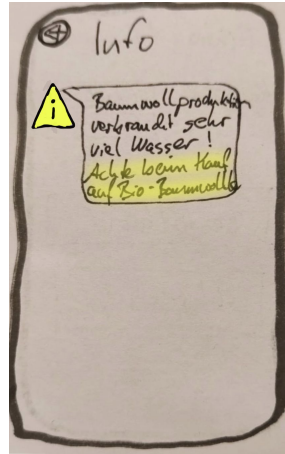 Info
i
Baumwollproduktion
verbraucht sehr
viel Wasser!
Achte beim Kauf
auf Bio-Baumwolle